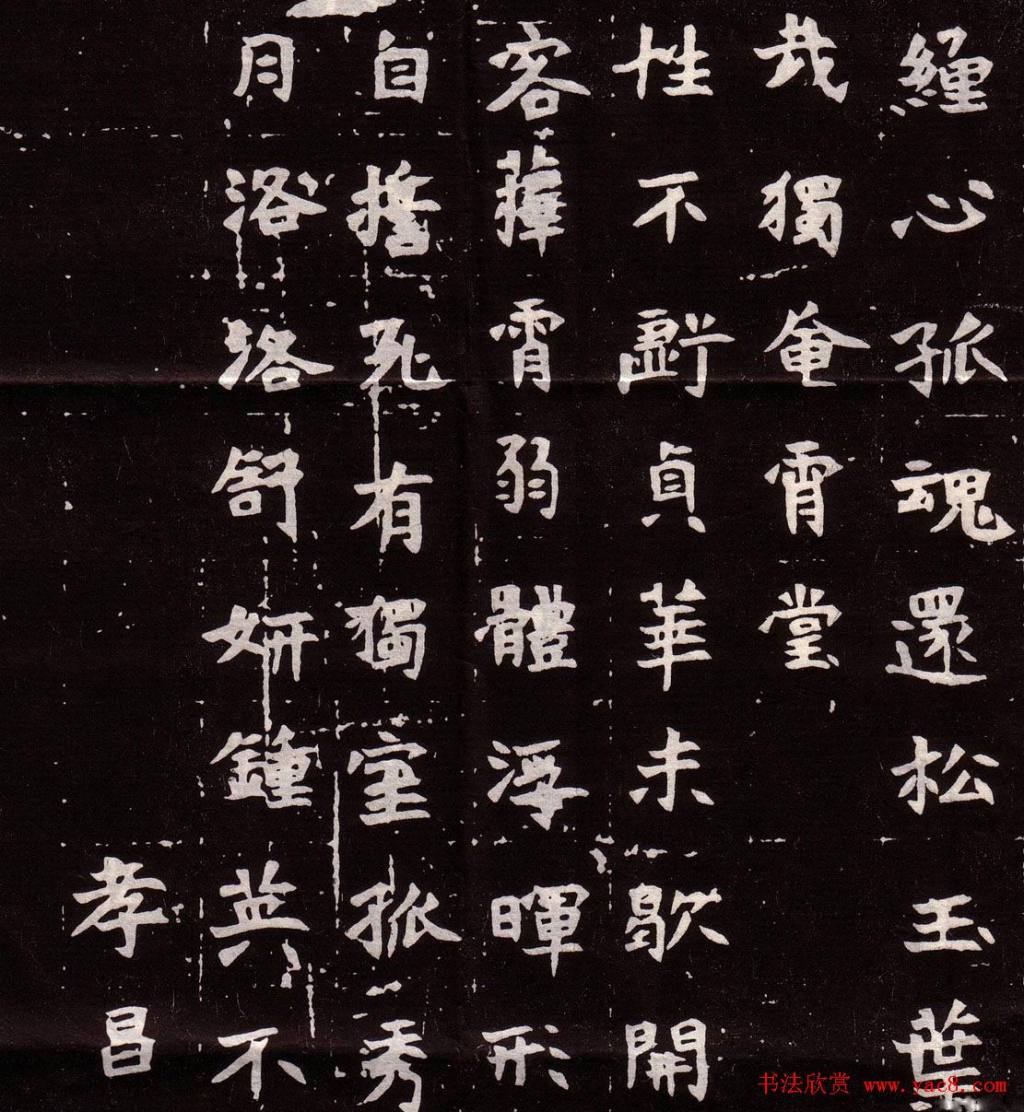 纏心孤魂還松玉葉
哉獨奄霄堂
性不虧貞華未歇開
容霄弱體浮暉形
自死有獨室孤秀
月浴洛舒妍鍾不
孝昌
书法欣赏 www.yac8.com